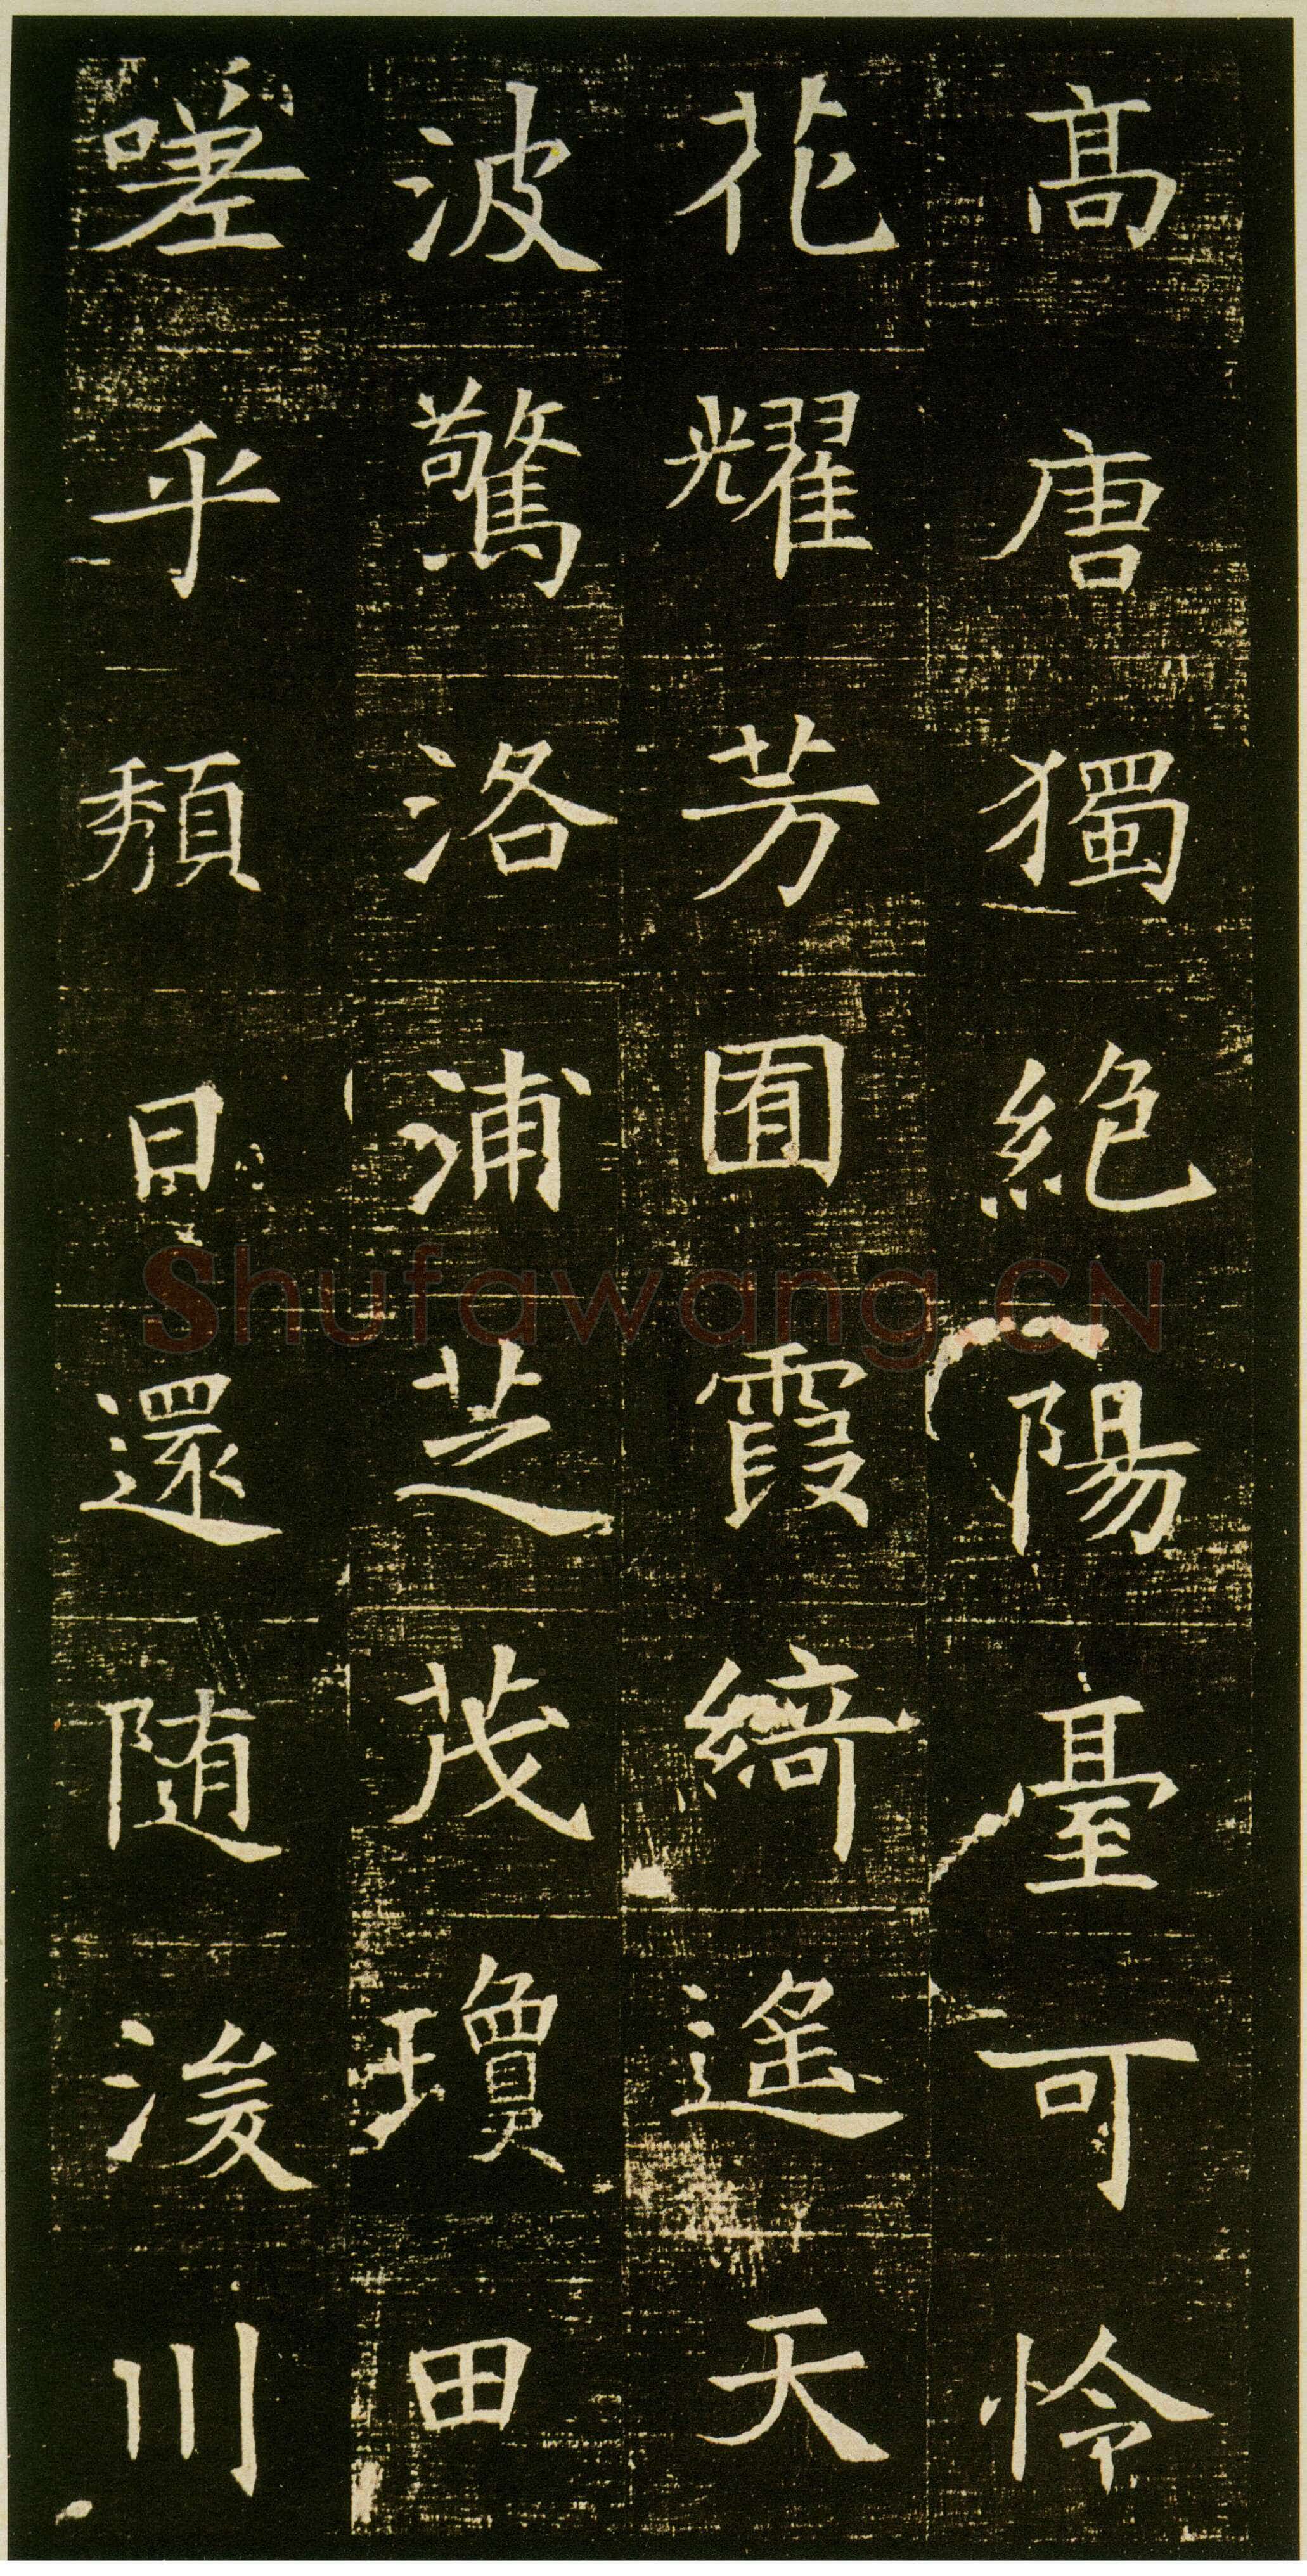 高唐獨絶陽臺可怜
花耀芳囿霞綺遙天
波驚洛浦芝茂瓊田
嗟乎頽日還随浚川
Shufawang.CN